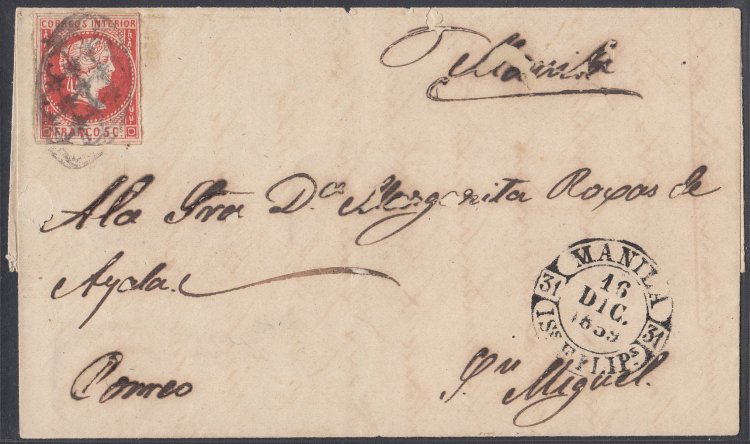 CORREOS INTERIOR
FRANCO. 5 Cs
Manila
A la Sra Da. Margarita Roxas de
Ayala.
MANILA
16
DIC.
1859
31 31
Iss FILIPs
Correo
Sn Miguel.